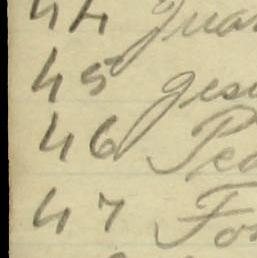 44 Jua
45 Jesu
46 Ped
47 Fo